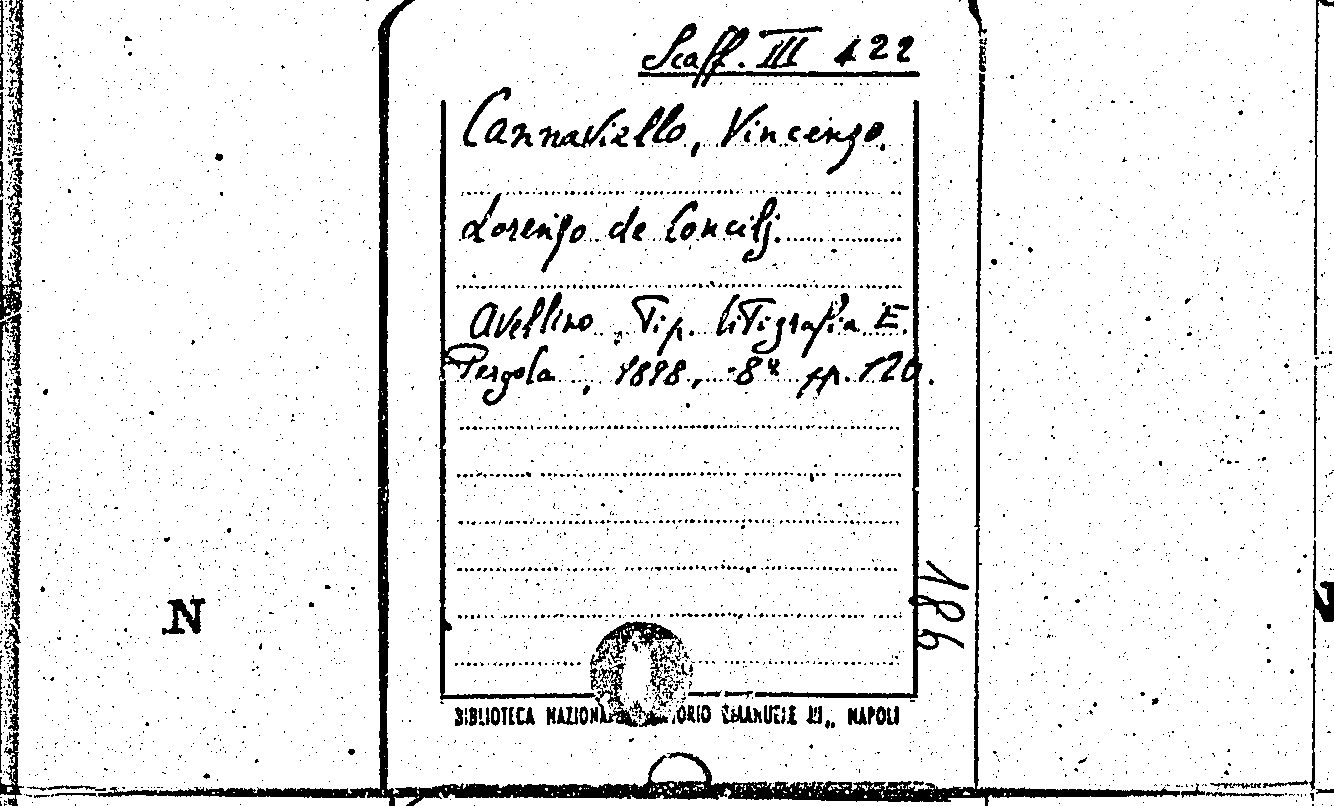 Scaff. III 422
Cannaviello, Vincenzo.
Lorenzo de Concilj.
Avellino, Tip. litigrafia E.
Pergola, 1898, -8° pp. 120.
186
N
N
BIBLIOTECA EMANUELE III,, NAPOLI